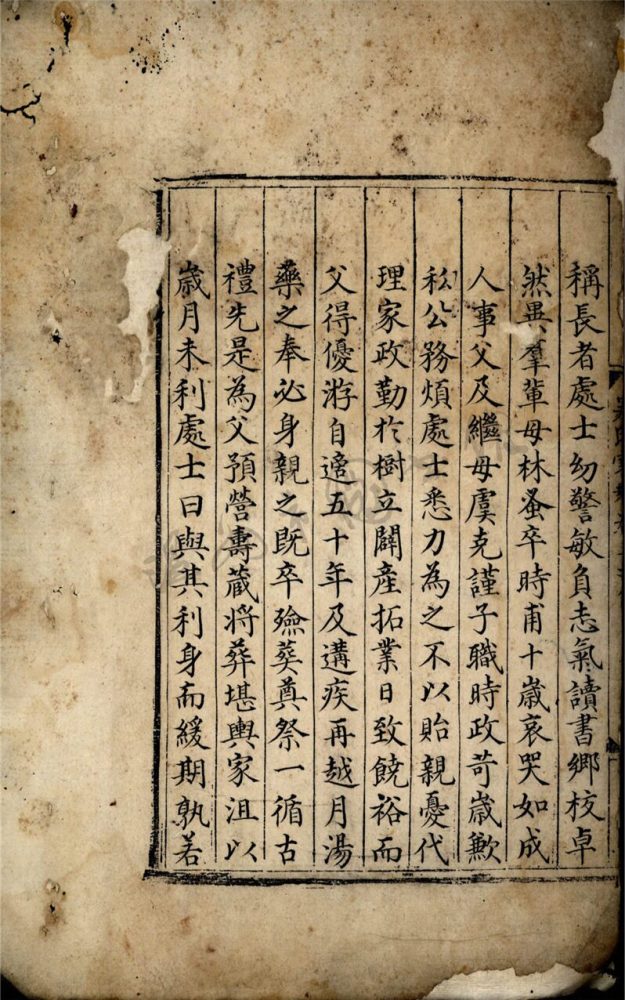 稱長者處士幼警敏負志氣讀書鄉校卓
然異羣輩母林蚤卒時甫十歲哀哭如成
人事父及繼母虞克謹子職時政苛歲歉
私公務煩處士悉力為之不以貽親憂代
理家政勤於樹立闢產拓業日致饒裕而
父得優游自適五十年及遘疾再越月湯
藥之奉必身親之既卒殮葬奠祭一循古
禮先是為父預營壽藏將葬堪輿家沮以
歲月未利處士曰與其利身而緩期孰若